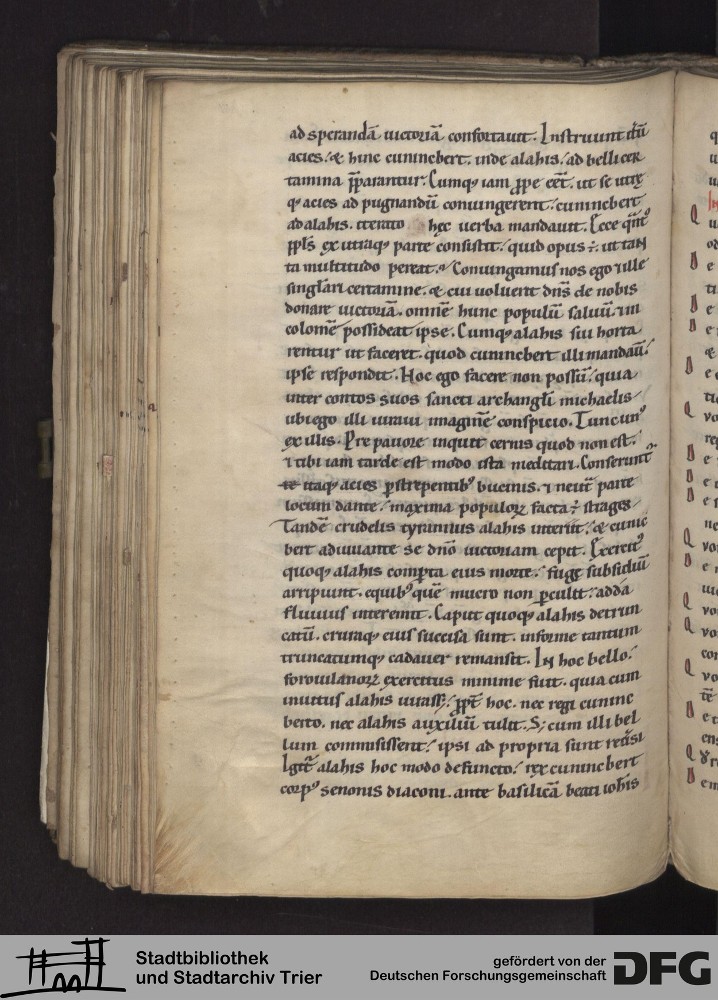 ad sperandā uictoriā confortauit. Instruunt itē
acies. & hinc cunincbert. inde alahis. ad belli cer
tamina p̄parantur. Cumq; iam ꝓpe eēt. ut se utrę
q; acies ad pugnandū coniungerent. cunincbert
ad alahis. iterato hęc uerba mandauit. Ecce q̄ntꝰ
ppl̄s ex utraq; parte consistit. quid opus ÷ ut tan
ta multitudo pereat. Coniungamus nos ego & ille
singlari certamine. & cui uoluerit dn̄s de nobis
donare uictoriā. omnē hunc populū saluū. & in
colomē possideat ipse. Cumq; alahis sui horta
rentur ut faceret. quod cunincbert illi mandaū.
ipse respondit. Hoc ego facere non possū. quia
inter contos suos sancti archangl̄i michaelis
ubi ego illi iuraui imaginē conspicio. Tunc unꝰ
ex illis. Pre pauore inquit cernis quod non est.
& tibi iam tarde est modo ista meditari. Conserunt̄
itaq; acies p̱strepentibꝰ bucinis. & neut̄ parte
locum dante. maxima populoꝝ facta ÷ strages
Tandē crudelis tyrannus alahis interiit. & cunīc
bert adiuuante se dn̄o uictoriam cepit. Exercitꝰ
quoq; alahis comp̱ta eius morte. fugę subsidiū
arripuit. e quibꝰ quē mucro non p̱culit. adda
fluuius interemit. Caput quoq; alahis detrun
catū. cruraq; eius succisa sunt. informe tantum
truncatumq; cadauer remansit. In hoc bello.
foroiulanoꝝ exercitus minime fuit. quia cum
inuitus alahis iurass; ꝓpt̄ hoc. nec regi cuninc
berto. nec alahis auxiliū tulit. S; cum illi bel
lum commisissent. ipsi ad propria sunt reūsi
Igit̄ alahis hoc modo defuncto. rex cunincbert
corpꝰ senonis diaconi. ante basilicā beati ioh̄is
Stadtbibliothek
und Stadtarchiv Trier
gefördert von der
Deutschen Forschungsgemeinschaft
DFG